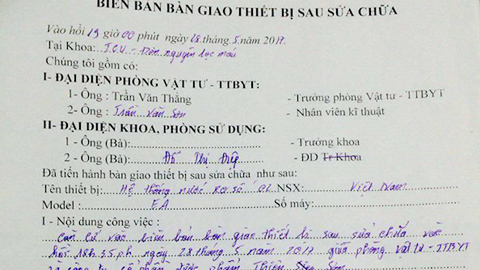 BIÊN BẢN BÀN GIAO THIẾT BỊ SAU SỬA CHỮA
Vào hồi 19 giờ 00 phút ngày 28 tháng 5 năm 2017.
Tại Khoa: - nguyên lọc máu
Chúng tôi gồm có:
I- ĐẠI DIỆN PHÒNG VẬT TƯ - TTBYT:
1- Ông : Trần Văn Thắng - Trưởng phòng Vật tư - TTBYT
2- Ông : Trần Văn Sơn - Nhân viên kĩ thuật
II- ĐẠI DIỆN KHOA, PHÒNG SỬ DỤNG:
1 - Ông (Bà): - Trưởng khoa
2 - Ông (Bà): Đỗ Thị Điệp - ĐD Tr Khoa
Đã tiến hành bàn giao thiết bị sau sửa chữa như sau:
Tên thiết bị: Hệ thống nước RO số 02 NSX: Việt Nam
Model : Số máy:
I - Nội dung công việc :
Căn cứ vào biên bản bàn giao thiết bị sau sửa chữa vào
hồi ngày 28 tháng 5 năm 2017 giữa phòng vật tư - TTBYT
công ty dược phẩm Thiên Sơn